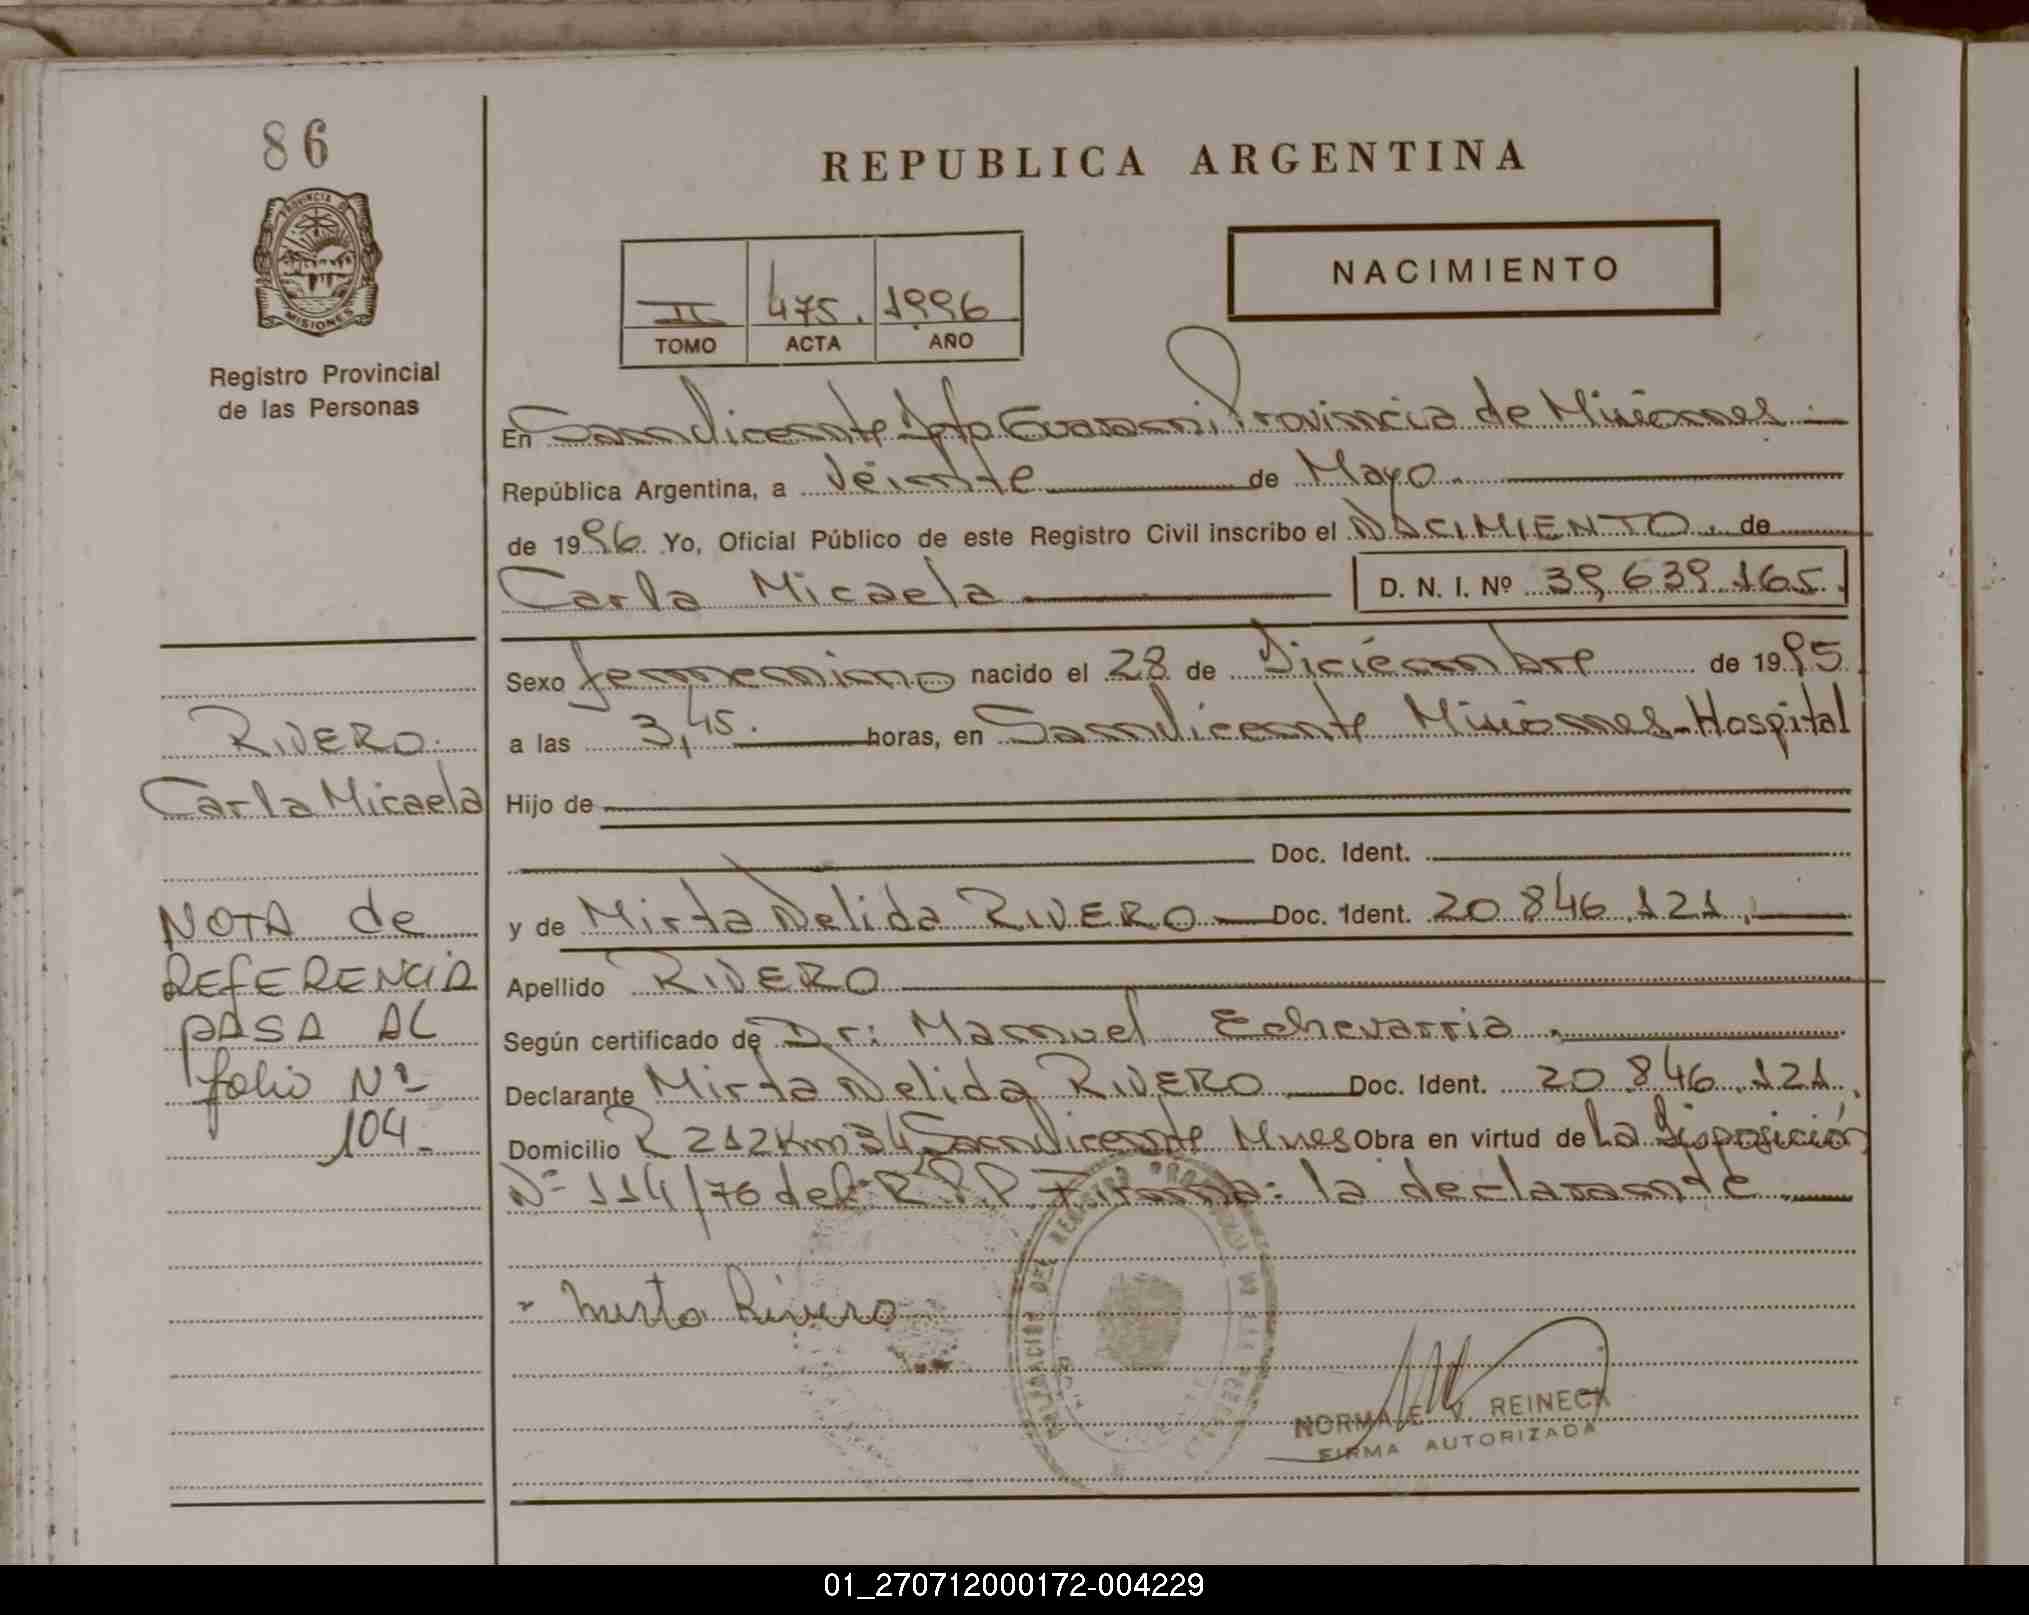 86
PROVINCIA DE
MISIONES
Registro Provincial
de las Personas
REPUBLICA ARGENTINA
II 475. 1996
TOMO ACTA AÑO
NACIMIENTO
En San Vicente Dpto Guarani Provincia de Misiones
República Argentina, a Veinte de Mayo
de 1996 Yo, Oficial Público de este Registro Civil inscribo el NACIMIENTO. de
Carla Micaela D. N. I. Nº 39,639.165.
Sexo femenino nacido el 28 de Diciembre de 1995
a las 3,45. horas, en San Vicente Misiones-Hospital
Hijo de
Doc. Ident.
y de Mirta Nelida RIVERO Doc. Ident. 20.846.121.
Apellido RIVERO
Según certificado de Dr: Manuel Echevarria.
Declarante Mirta Nelida RIVERO Doc. Ident. 20.846.121.
Domicilio R 212 Km 34 San Vicente Mnes Obra en virtud de La Disposición
Nº 114/76 del R.P.P. Firma: la declarante
Mirta Rivero
RIVERO.
Carla Micaela
NOTA de
REFERENCIA
PASA AL
folio Nº
104-
NORMA E. V. REINECK
FIRMA AUTORIZADA
01_270712000172-004229